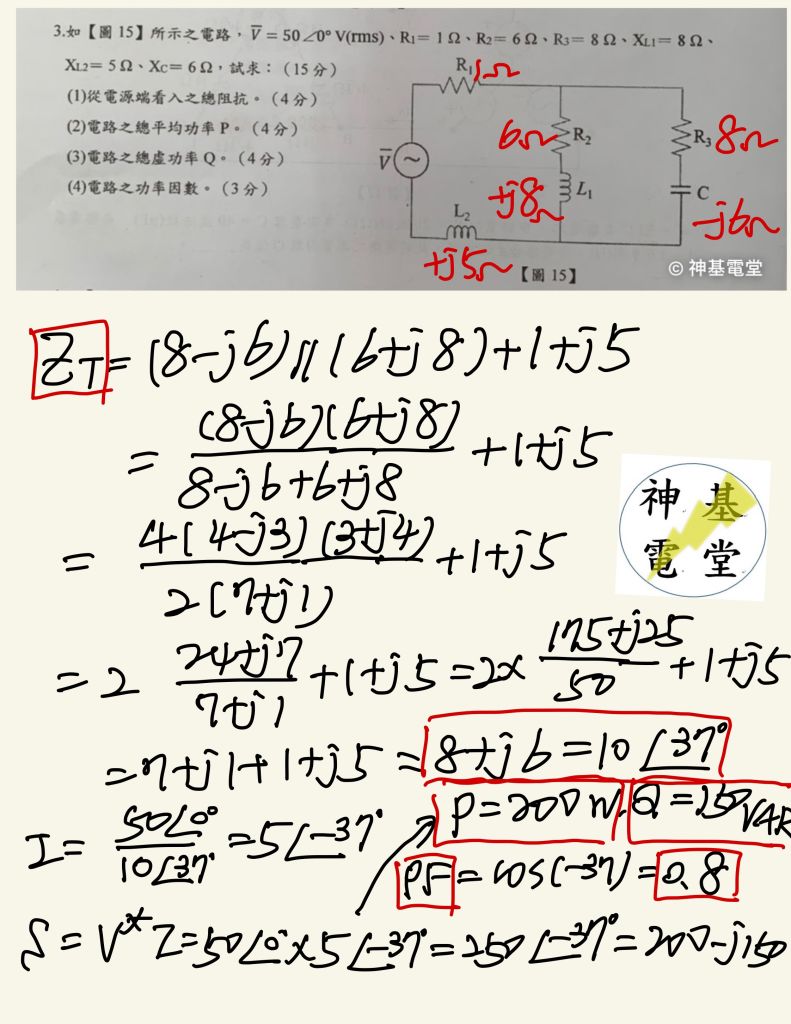 3.如【圖 15】所示之電路，V̅ = 50∠0° V(rms)、R1= 1 Ω、R2= 6 Ω、R3= 8 Ω、XL1= 8 Ω、
XL2= 5 Ω、XC= 6 Ω，試求：(15 分)
(1)從電源端看入之總阻抗。(4 分)
(2)電路之總平均功率 P。(4 分)
(3)電路之總虛功率 Q。(4 分)
(4)電路之功率因數。(3 分)
R1 1Ω
6Ω R2
R3 8Ω
V̅ ~
+j8Ω L1
C -j6Ω
L2
+j5Ω
【圖 15】
© 神基電堂
ZT = (8-j6)//(6+j8)+1+j5
= (8-j6)(6+j8) / 8-j6+6+j8 + 1+j5
神基
電堂
= 4(4-j3)(3+j4) / 2(7+j1) + 1+j5
= 2 24+j7 / 7+j1 + 1+j5 = 2× 175+j25 / 50 + 1+j5
= 7+j1+1+j5 = 8+j6 = 10∠37°
P = 200W, Q = 150VAR
I = 50∠0° / 10∠37° = 5∠-37°
PF = cos(-37) = 0.8
S = V* I = 50∠0° × 5∠-37° = 250∠-37° = 200-j150